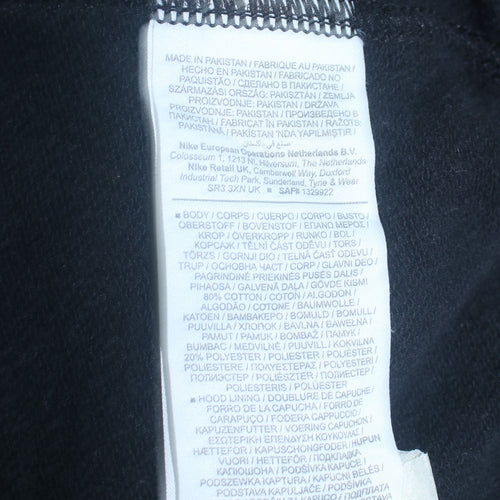 MADE IN PAKISTAN / FABRIQUE AU PAKISTAN /
HECHO EN PAKISTAN / FABRICADO NO
PAQUISTÃO / СДЕЛАНО В ПАКИСТАНЕ /
SZÁRMAZÁSI ORSZÁG: PAKISZTÁN / ZEMLJA
PROIZVODNJE: PAKISTAN / DRŽAVA
PROIZVODNJE: PAKISTAN / ПРОИЗВЕДЕНО В
ПАКИСТАН / FABRICAT ÎN PAKISTAN / RAŽOTS:
PAKISTĀNĀ / PAKISTAN 'NDA YAPILMIŞTIR /
صنع في باكستان
Nike European Operations Netherlands B.V.
Colosseum 1, 1213 NL Hilversum, The Netherlands
Nike Retail UK, Camberwell Way, Doxford
Industrial Tech Park, Sunderland, Tyne & Wear
SR3 3XN UK ■ SAP# 1329922
■ BODY / CORPS / CUERPO / CORPO / BUSTO /
OBERSTOFF / BOVENSTOF / ΕΠΑΝΩ ΜΕΡΟΣ /
KROP / ÖVERKROPP / RUNKO / BOL /
КОРСАЖ / TĚLNÍ ČÁST ODĚVU / TORS /
TÖRZS / GORNJI DIO / TELNÁ ČASŤ ODEVU /
TRUP / ОСНОВНА ЧАСТ / CORP / GLAVNI DEO /
PAGRINDINĖ PRIEKINĖS PUSĖS DALIS /
PIHAOSA / GALVENĀ DAĻA / GÖVDE KISMI
80% COTTON / COTON / ALGODON /
ALGODÃO / COTONE / BAUMWOLLE /
KATOEN / ΒΑΜΒΑΚΕΡΟ / BOMULD / BOMULL /
PUUVILLA / ХЛОПОК / BAVLNA / BAWEŁNA /
PAMUT / PAMUK / BOMBAŽ / ПАМУК /
BUMBAC / MEDVILNĖ / PUUVILL / KOKVILNA
20% POLYESTER / POLIESTER / POLIÉSTER /
POLIESTERE / ΠΟΛΥΕΣΤΕΡΑΣ / POLYESTERI /
ПОЛИЭСТЕР / POLIÉSZTER / ПОЛИЕСТЕР /
POLIESTERIS / POLÜESTER
■ HOOD LINING / DOUBLURE DE CAPUCHE /
FORRO DE LA CAPUCHA / FORRO DE
CARAPUÇO / FODERA CAPPUCCIO /
KAPUZENFUTTER / VOERING CAPUCHON /
ΕΣΩΤΕΡΙΚΗ ΕΠΕΝΔΥΣΗ ΚΟΥΚΟΥΛΑΣ /
HÆTTEFÓR / KAPUSCHONGFODER / HUPUN
VUORI / HETTEFÔR / ПОДКЛАДКА
КАПЮШОНА / PODŠÍVKA KAPUCE /
PODSZEWKA KAPTURA / KAPUCNI BÉLÉS /
PODSTAVA KAPULJAČE / PODŠÍVKA